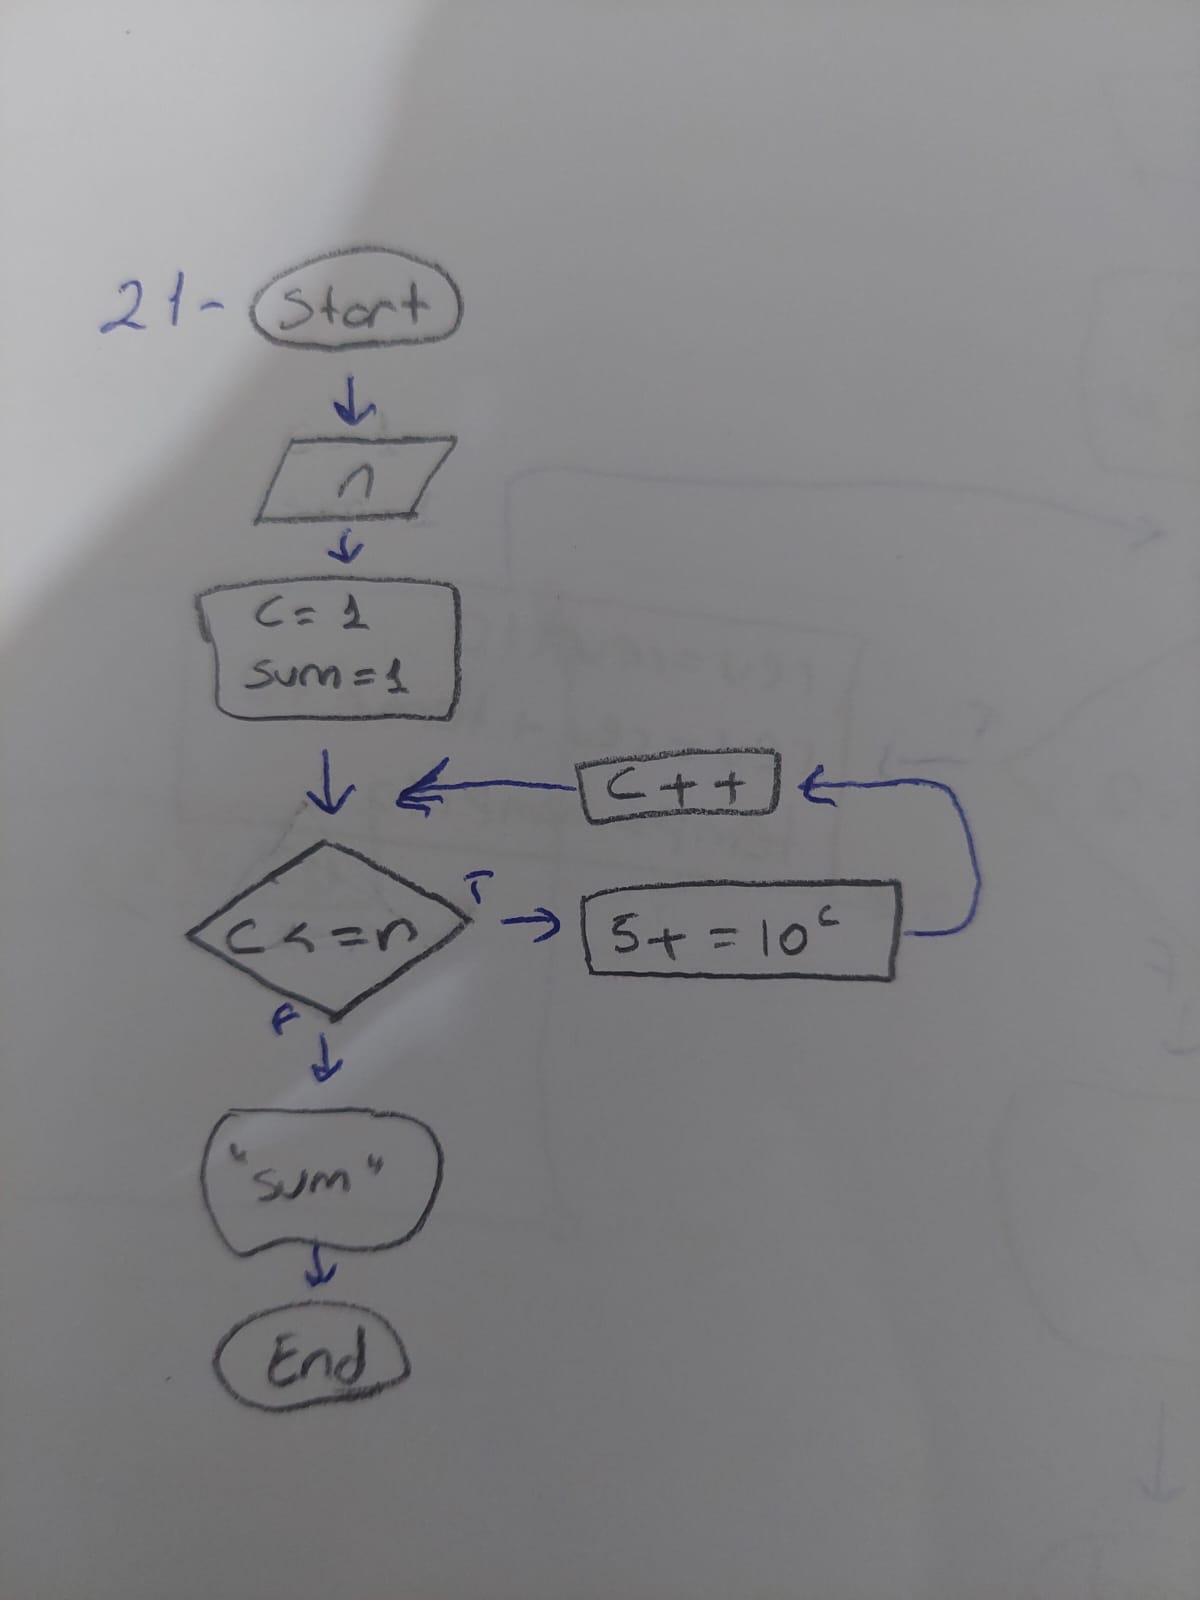 21- Start
n
C = 1
sum = 1
C++
C <= n
T
S+ = 10^c
F
"sum"
End